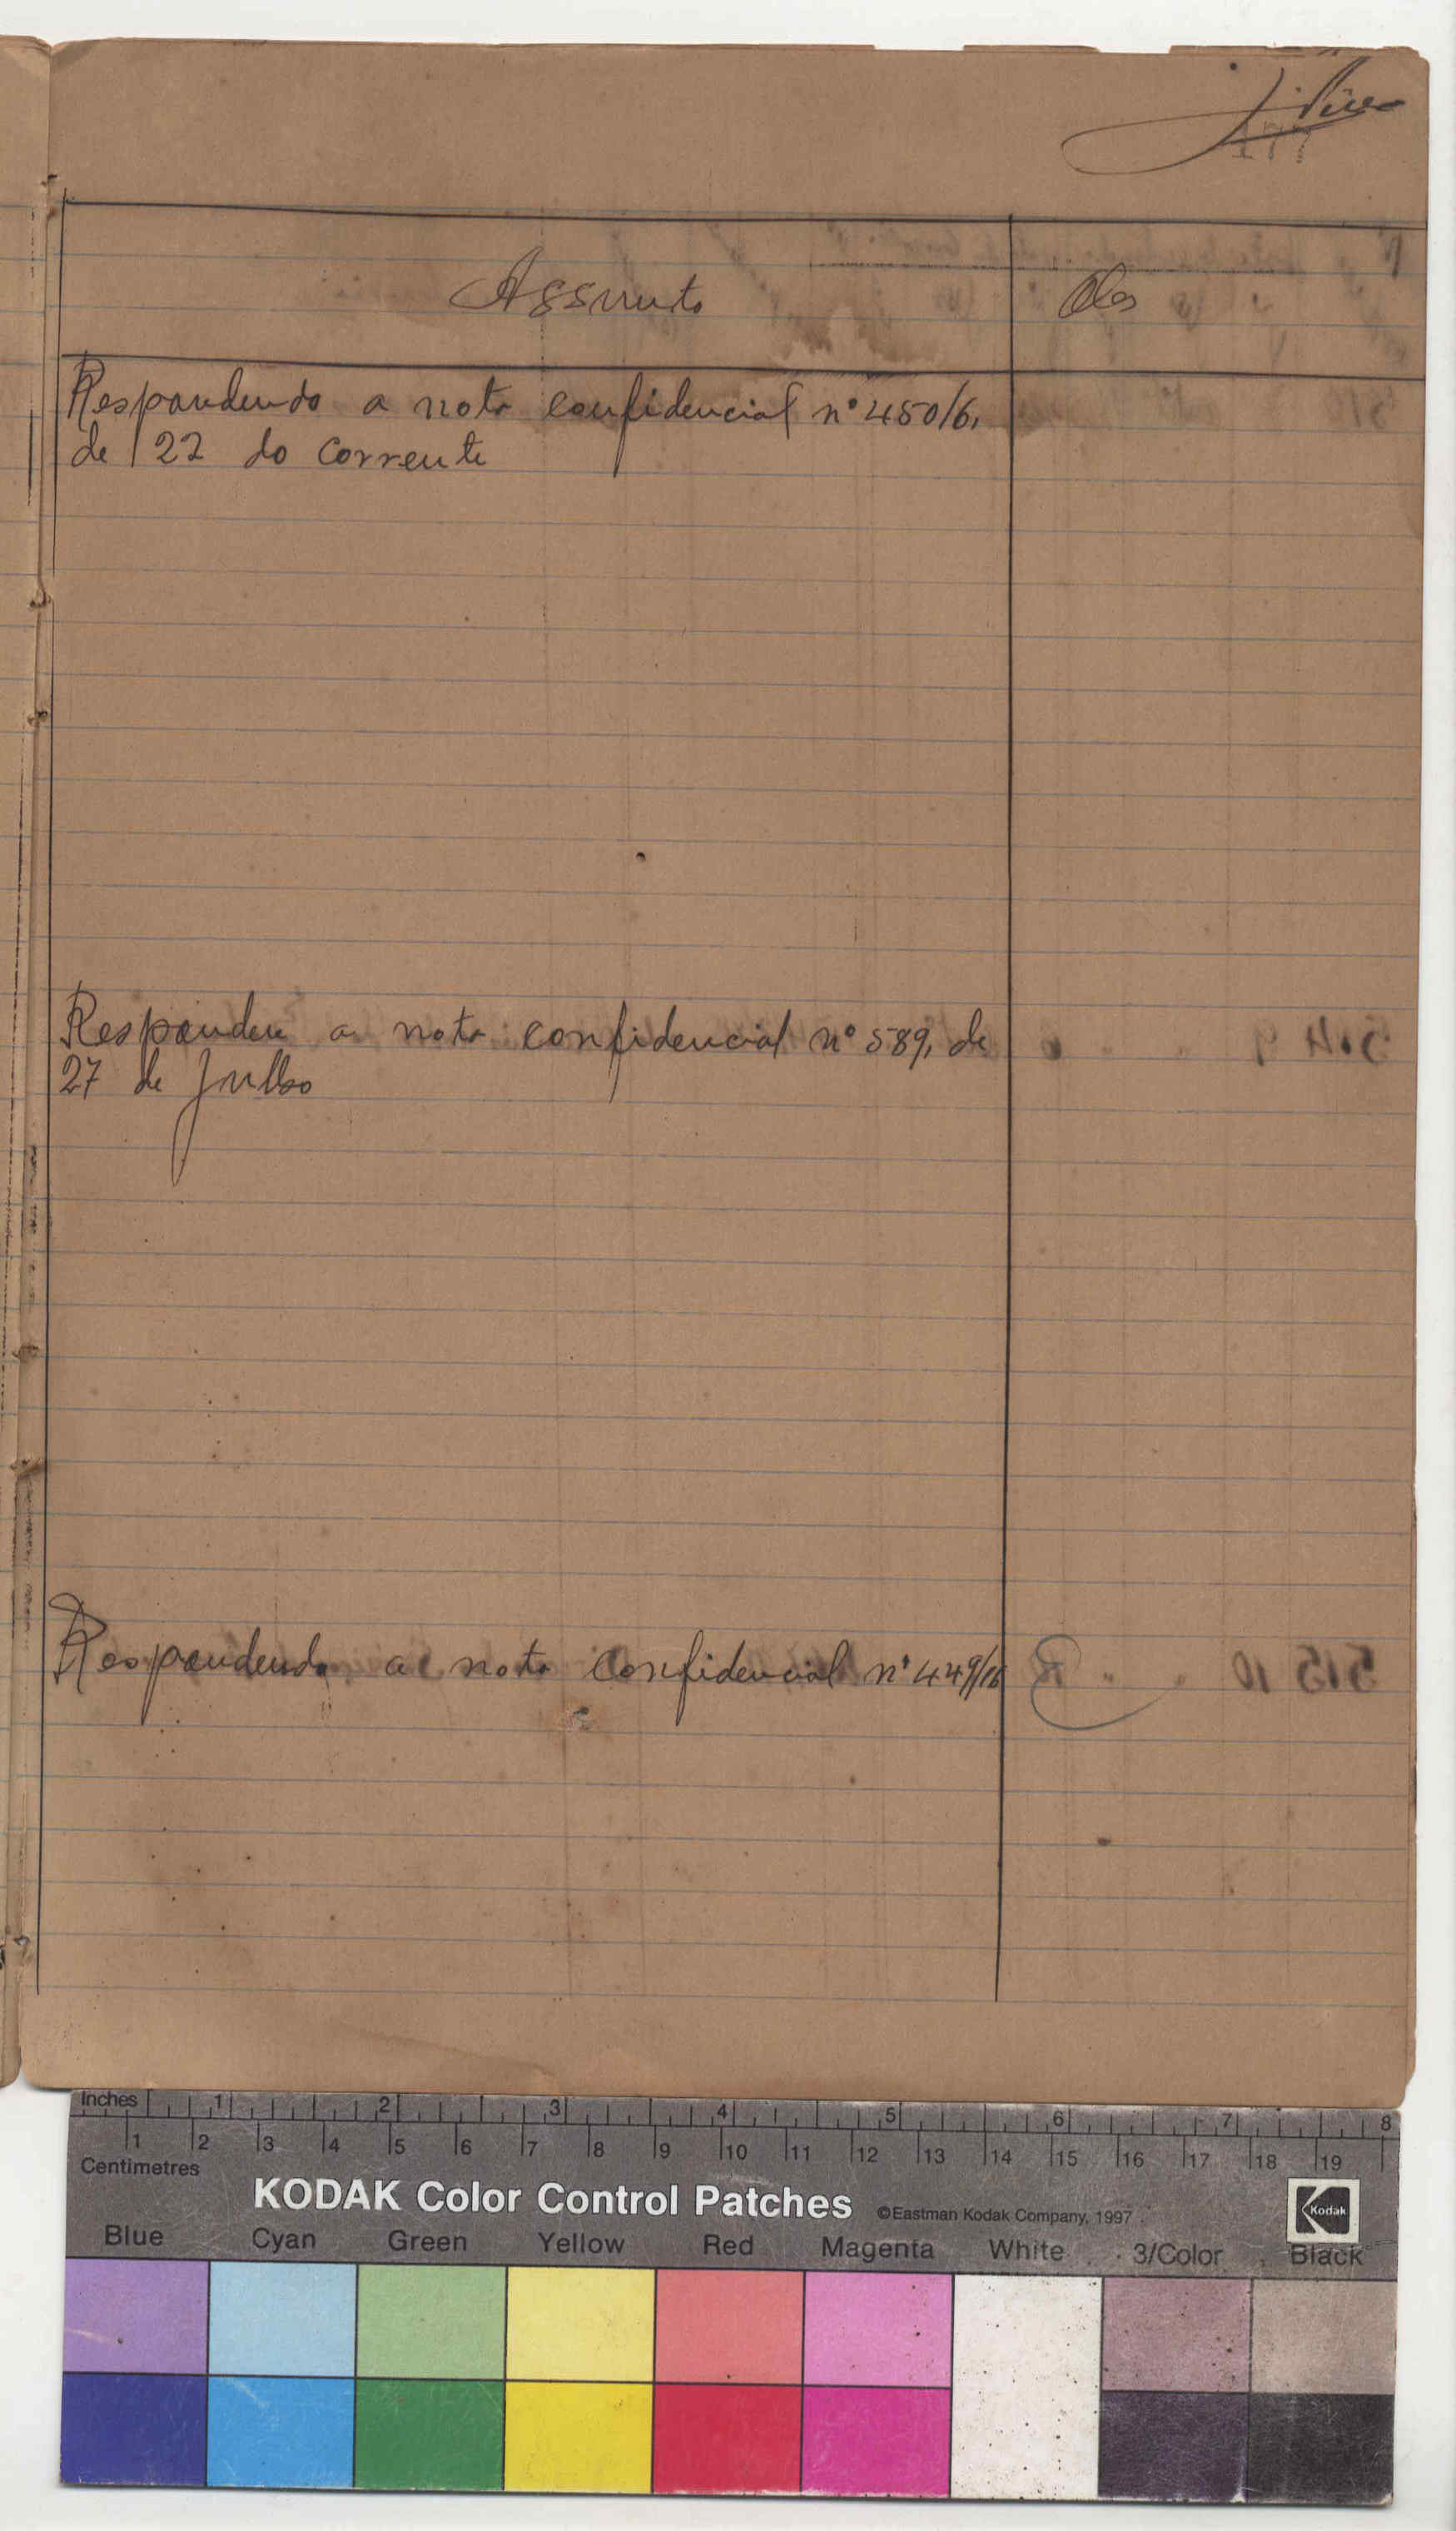 Assunto
Obs
Respondendo a nota confidencial nº 450/6,
de 22 do corrente
Responder a nota confidencial nº 589, de
27 de Julho
Respondendo a nota confidencial nº 449/16
Inches 1 2 3 4 5 6 7 8
1 2 3 4 5 6 7 8 9 10 11 12 13 14 15 16 17 18 19
Centimetres
KODAK Color Control Patches ©Eastman Kodak Company, 1997
Kodak
Blue Cyan Green Yellow Red Magenta White 3/Color Black